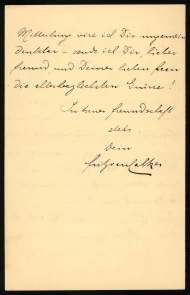 Mitteilung wäre ich Dir ungemein
dankbar – sende ich Dir, lieber
Freund und Deiner lieben Frau
die allerherzlichsten Grüsse!
In treuer Freundschaft
stets
Dein